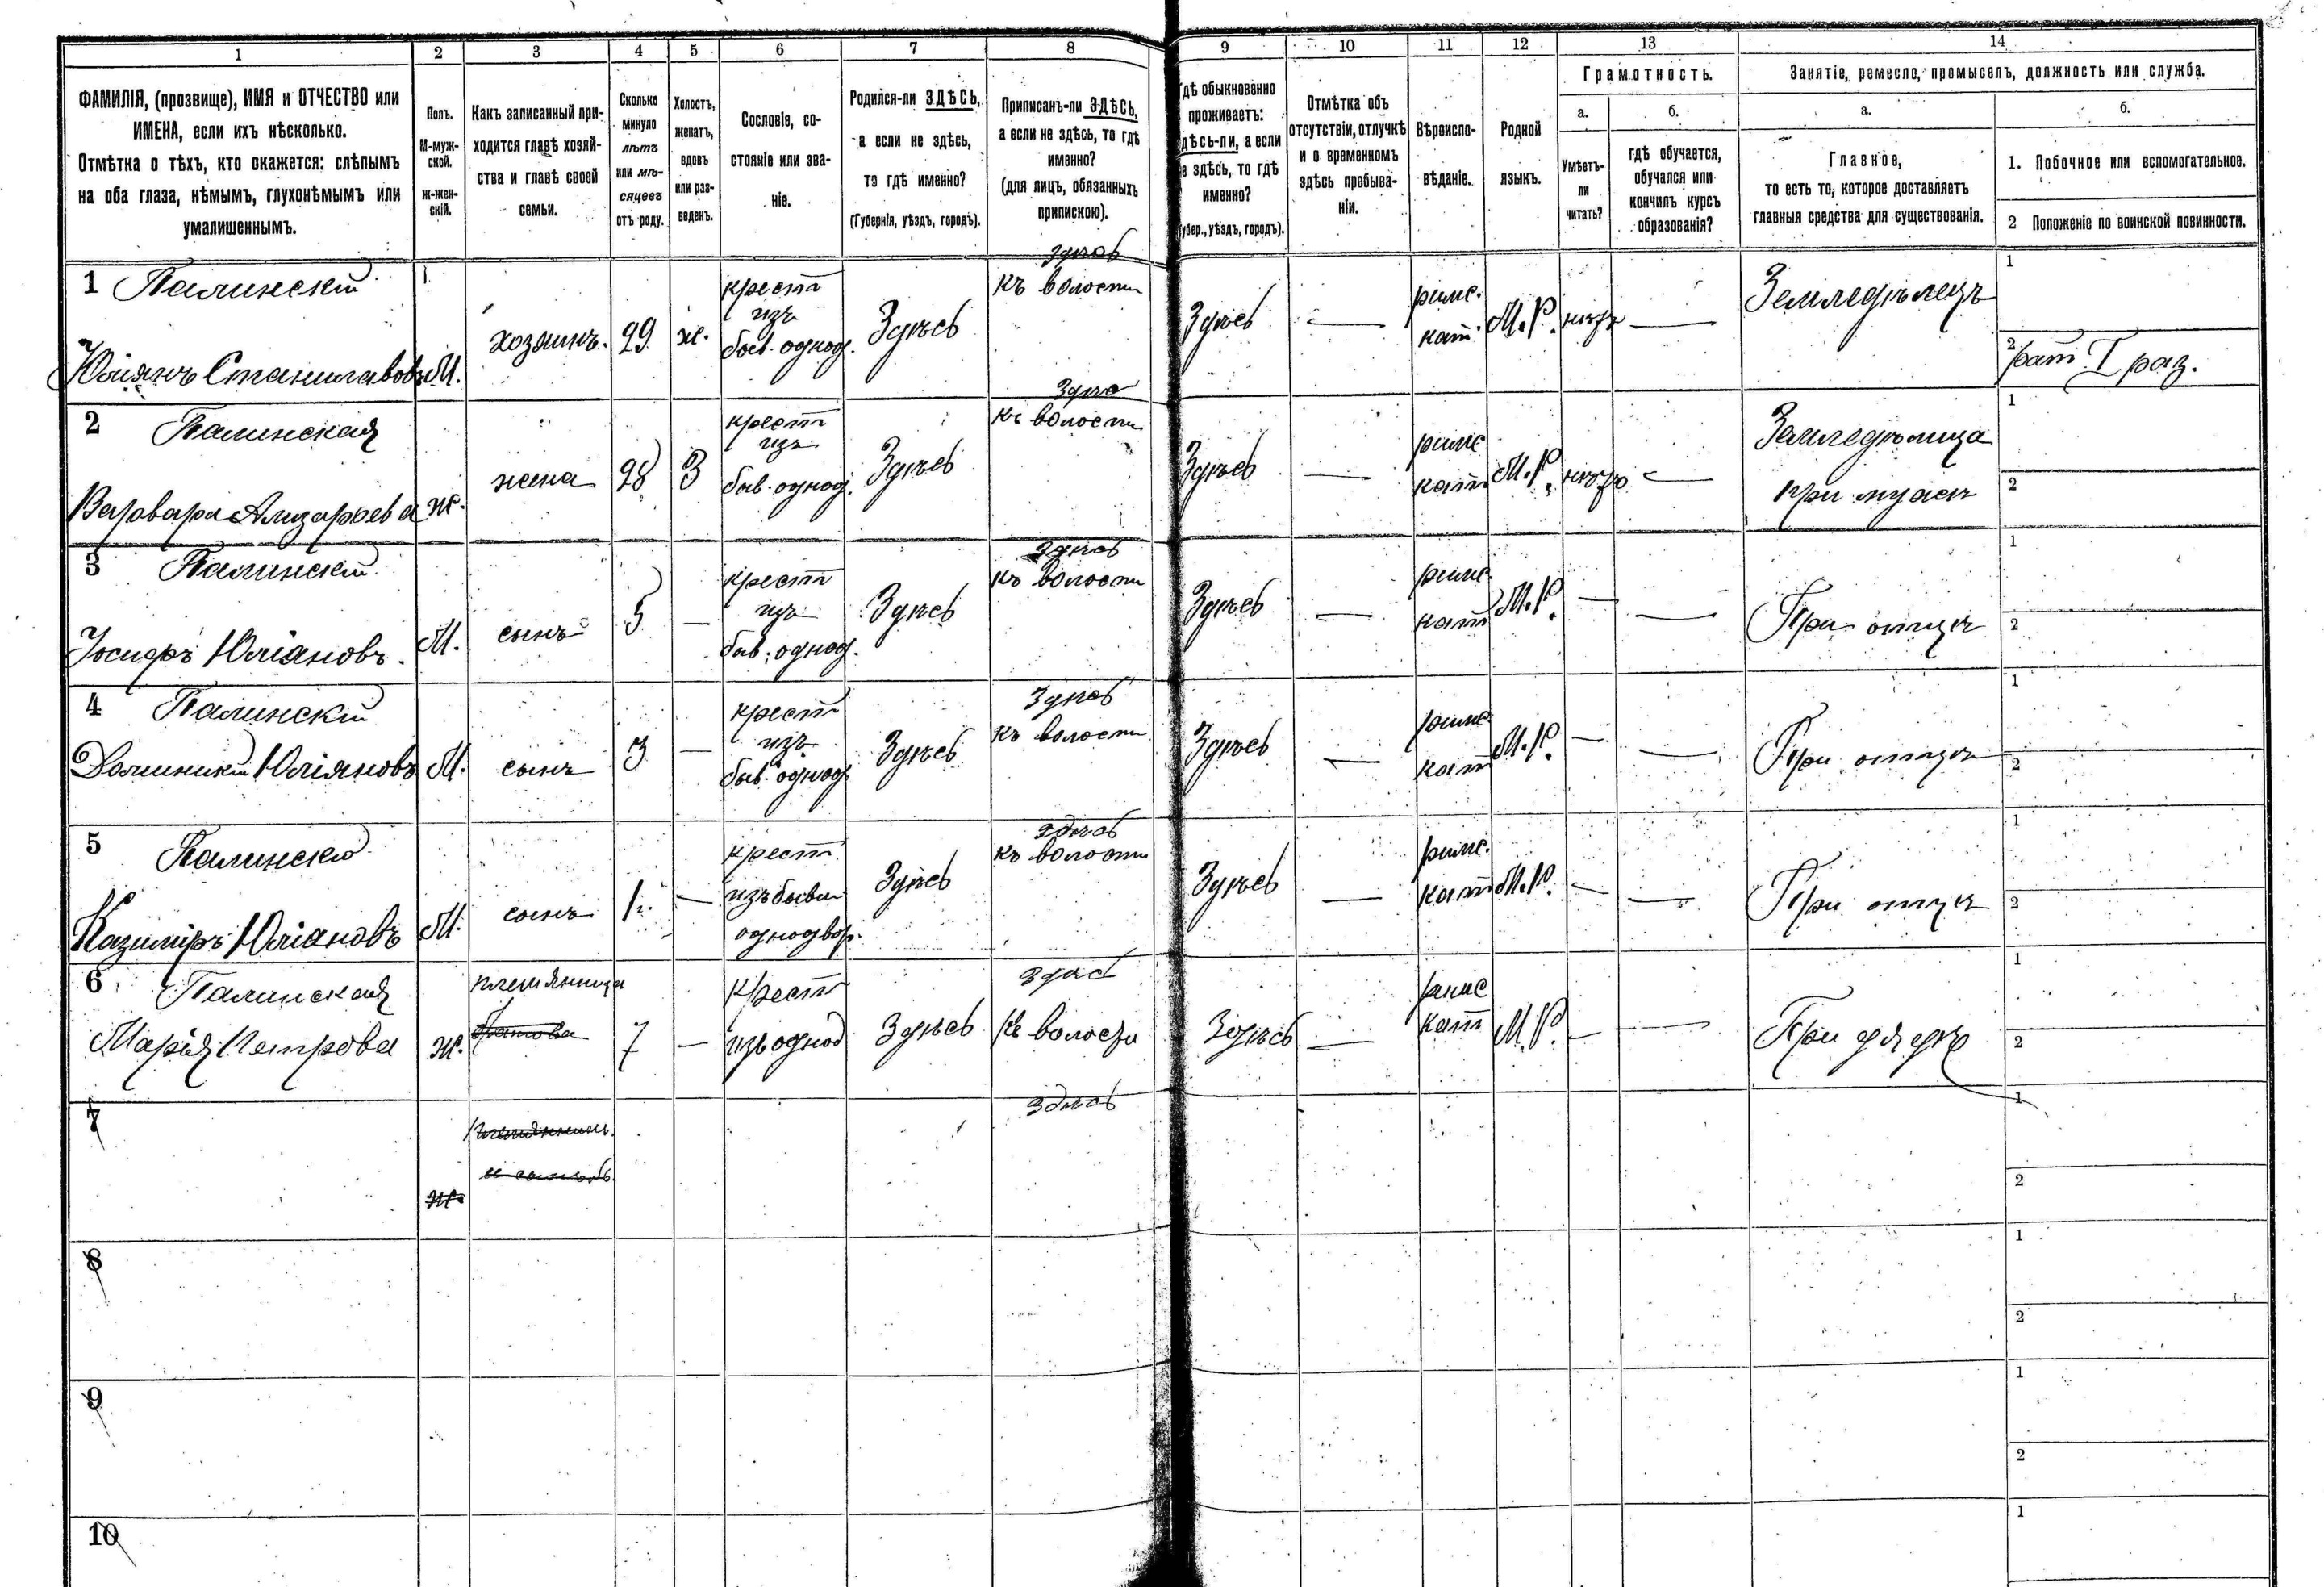 1 2 3 4 5 6 7 8 9 10 11 12 13 14
ФАМИЛІЯ, (прозвище), ИМЯ и ОТЧЕСТВО или
ИМЕНА, если ихъ нѣсколько.
Отмѣтка о тѣхъ, кто окажется: слѣпымъ
на оба глаза, нѣмымъ, глухонѣмымъ или
умалишеннымъ.
Полъ.
М-муж-
ской.
ж-жен-
скій.
Какъ записанный при-
ходится главѣ хозяй-
ства и главѣ своей
семьи.
Сколько
минуло
лѣтъ
или мѣ-
сяцевъ
отъ роду.
Холостъ,
женатъ,
вдовъ
или раз-
веденъ.
Сословіе, со-
стояніе или зва-
ніе.
Родился-ли ЗДѢСЬ,
а если не здѣсь,
то гдѣ именно?
(Губернія, уѣздъ, городъ).
Приписанъ-ли ЗДѢСЬ,
а если не здѣсь, то гдѣ
именно?
(для лицъ, обязанныхъ
припискою).
гдѣ обыкновенно
проживаетъ:
здѣсь-ли, а если
не здѣсь, то гдѣ
именно?
(губер., уѣздъ, городъ).
Отмѣтка объ
отсутствіи, отлучкѣ
и о временномъ
здѣсь пребыва-
ніи.
Вѣроиспо-
вѣданіе.
Родной
языкъ.
Грамотность.
а.
Умѣетъ-
ли
читать?
б.
гдѣ обучается,
обучался или
кончилъ курсъ
образованія?
Занятіе, ремесло, промыселъ, должность или служба.
а.
Главное,
то есть то, которое доставляетъ
главныя средства для существованія.
б.
1. Побочное или вспомогательное.
2 Положеніе по воинской повинности.
1 Палинскій
Юліянъ Станиславовъ
М.
хозяинъ.
29
ж.
крест
изъ
быв. однод.
Здѣсь
здѣсь
къ волости
Здѣсь
—
римс.
кат.
М.Р.
нѣтъ
—
Земледѣлецъ
1
2
рат. I раз.
2 Палинская
Варвара Лизарьева
ж.
жена
28
З
крест
изъ
быв. однод.
Здѣсь
Здѣс
къ волости
Здѣсь
—
римс
кат
М.Р.
нѣтъ
—
Земледѣлица
при мужѣ
1
2
3 Палинскій
Іосифъ Юліановъ.
М.
сынъ
5
—
крест
изъ
быв. однод.
Здѣсь
Здѣсь
къ волости
Здѣсь
—
римс.
кат
М.Р.
—
—
При отцѣ
1
2
4 Палинскій
Доминикій Юліяновъ
М.
сынъ
3
—
крест
изъ
быв. однод
Здѣсь
Здѣсь
къ волости
Здѣсь
—
римс.
кат
М.Р.
—
—
При отцѣ
1
2
5 Палинскій
Казиміръ Юліановъ
М.
сынъ
1.
—
крест.
изъ бывш
однодвор.
Здѣсь
здѣсь
къ волости
Здѣсь
—
римс.
кат
М.Р.
—
—
При отцѣ
1
2
6 Палинская
Марія Петрова
ж.
племянница
7
—
крест
изъ однод
Здѣсь
здѣсь
къ волости
Здѣсь
—
римс
кат
М.Р.
—
—
При дядѣ
1
2
7
ж.
здѣсь
1
2
8
1
2
9
1
2
10
1